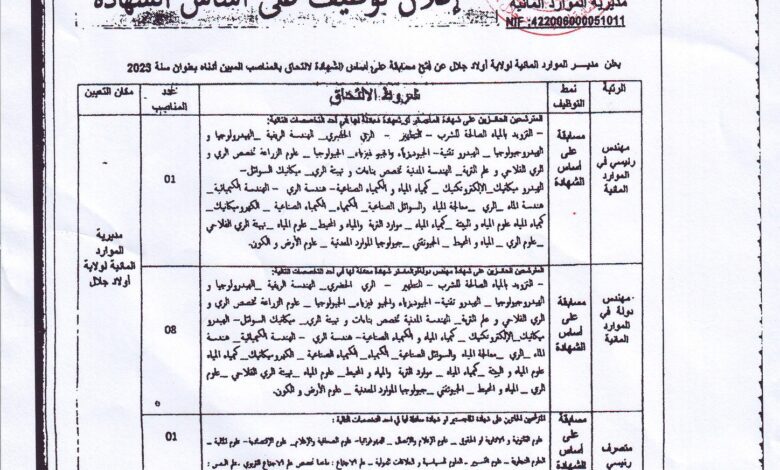 مديرية الموارد المائية
NIF:422006000051011
إعلان توظيف على أساس الشهادة
يعلن مديـر الموارد المائية لولاية أولاد جلال عن فتح مسابقة على أساس الشهادة للالتحاق بالمناصب المبين أدناه بعنوان سنة 2023
الرتبة
نمط التوظيف
شروط الالتحاق
عدد المناصب
مكان التعيين
مهندس رئيسي في الموارد المائية
مسابقة على أساس الشهادة
المترشحين الحائزين على شهادة الماجستير أو شهادة معادلة لها في أحد التخصصات التالية:
- التزويد بالمياه الصالحة للشرب - التطهير - الري الحضري_ الهندسة الريفية _ الهيدرولوجيا و
الهيدروجيولوجيا _ الهيدرو تقنية- الجيوديزياء والجيو فيزياء_ الجيولوجيا _ علوم الزراعة تخصص الري و
الري الفلاحي و علم التربة_ الهندسة المدنية تخصص بنايات و تهيئة الري_ ميكانيك السوائل-
الهيدرو ميكانيك_ الإلكتروتكنيك _ كيمياء المياه و الكيمياء الصناعية- هندسة الري - الهندسة الكيميائية_
هندسة الماء _ الري _ معالجة المياه والسوائل الصناعية_ الكيمياء_ الكيمياء الصناعية _ الكهروميكانيك_
كيمياء المياه علوم المياه و البيئة _ كيمياء المياه _ موارد التربة والمياه و المحيط_ علوم المياه _ تهيئة الري الفلاحي
_ علوم الري _ المياه و المحيط _ الجيوتقني _ جيولوجيا الموارد المعدنية _ علوم الأرض و الكون.
01
مديرية الموارد المائية لولاية أولاد جلال
مهندس دولة في الموارد المائية
مسابقة على أساس الشهادة
المترشحين الحائزين على شهادة مهندس دولة أو الماستر شهادة معادلة لها في أحد التخصصات التالية:
- التزويد بالمياه الصالحة للشرب - التطهير - الري الحضري_ الهندسة الريفية _ الهيدرولوجيا و
الهيدروجيولوجيا _ الهيدرو تقنية- الجيوديزياء والجيو فيزياء_ الجيولوجيا _ علوم الزراعة تخصص الري و
الري الفلاحي و علم التربة_ الهندسة المدنية تخصص بنايات و تهيئة الري_ ميكانيك السوائل- الهيدرو
ميكانيك_الإلكتروتكنيك _ كيمياء المياه و الكيمياء الصناعية- هندسة الري - الهندسة الكيميائية_ هندسة
الماء _الري _ معالجة المياه والسوائل الصناعية_ الكيمياء_ الكيمياء الصناعية _ الكهروميكانيك_ كيمياء المياه
علوم المياه و البيئة _ كيمياء المياه _ موارد التربة والمياه و المحيط_ علوم المياه _ تهيئة الري الفلاحي _ علوم
الري _ المياه و المحيط _ الجيوتقني _ جيولوجيا الموارد المعدنية _ علوم الأرض و الكون.
08
متصرف رئيسي
مسابقة على أساس الشهادة
المترشحين الحائزين على شهادة الماجستير أو شهادة معادلة لها في أحد التخصصات التالية:
علوم القانونية و الادارية أو الحقوق - علوم الإعلام والإتصال _ علوم الإقتصادية- علوم المالية -
علوم التجارية - علوم التسيير - العلوم السياسية و العلاقات الدولية - علم الاجتماع
01